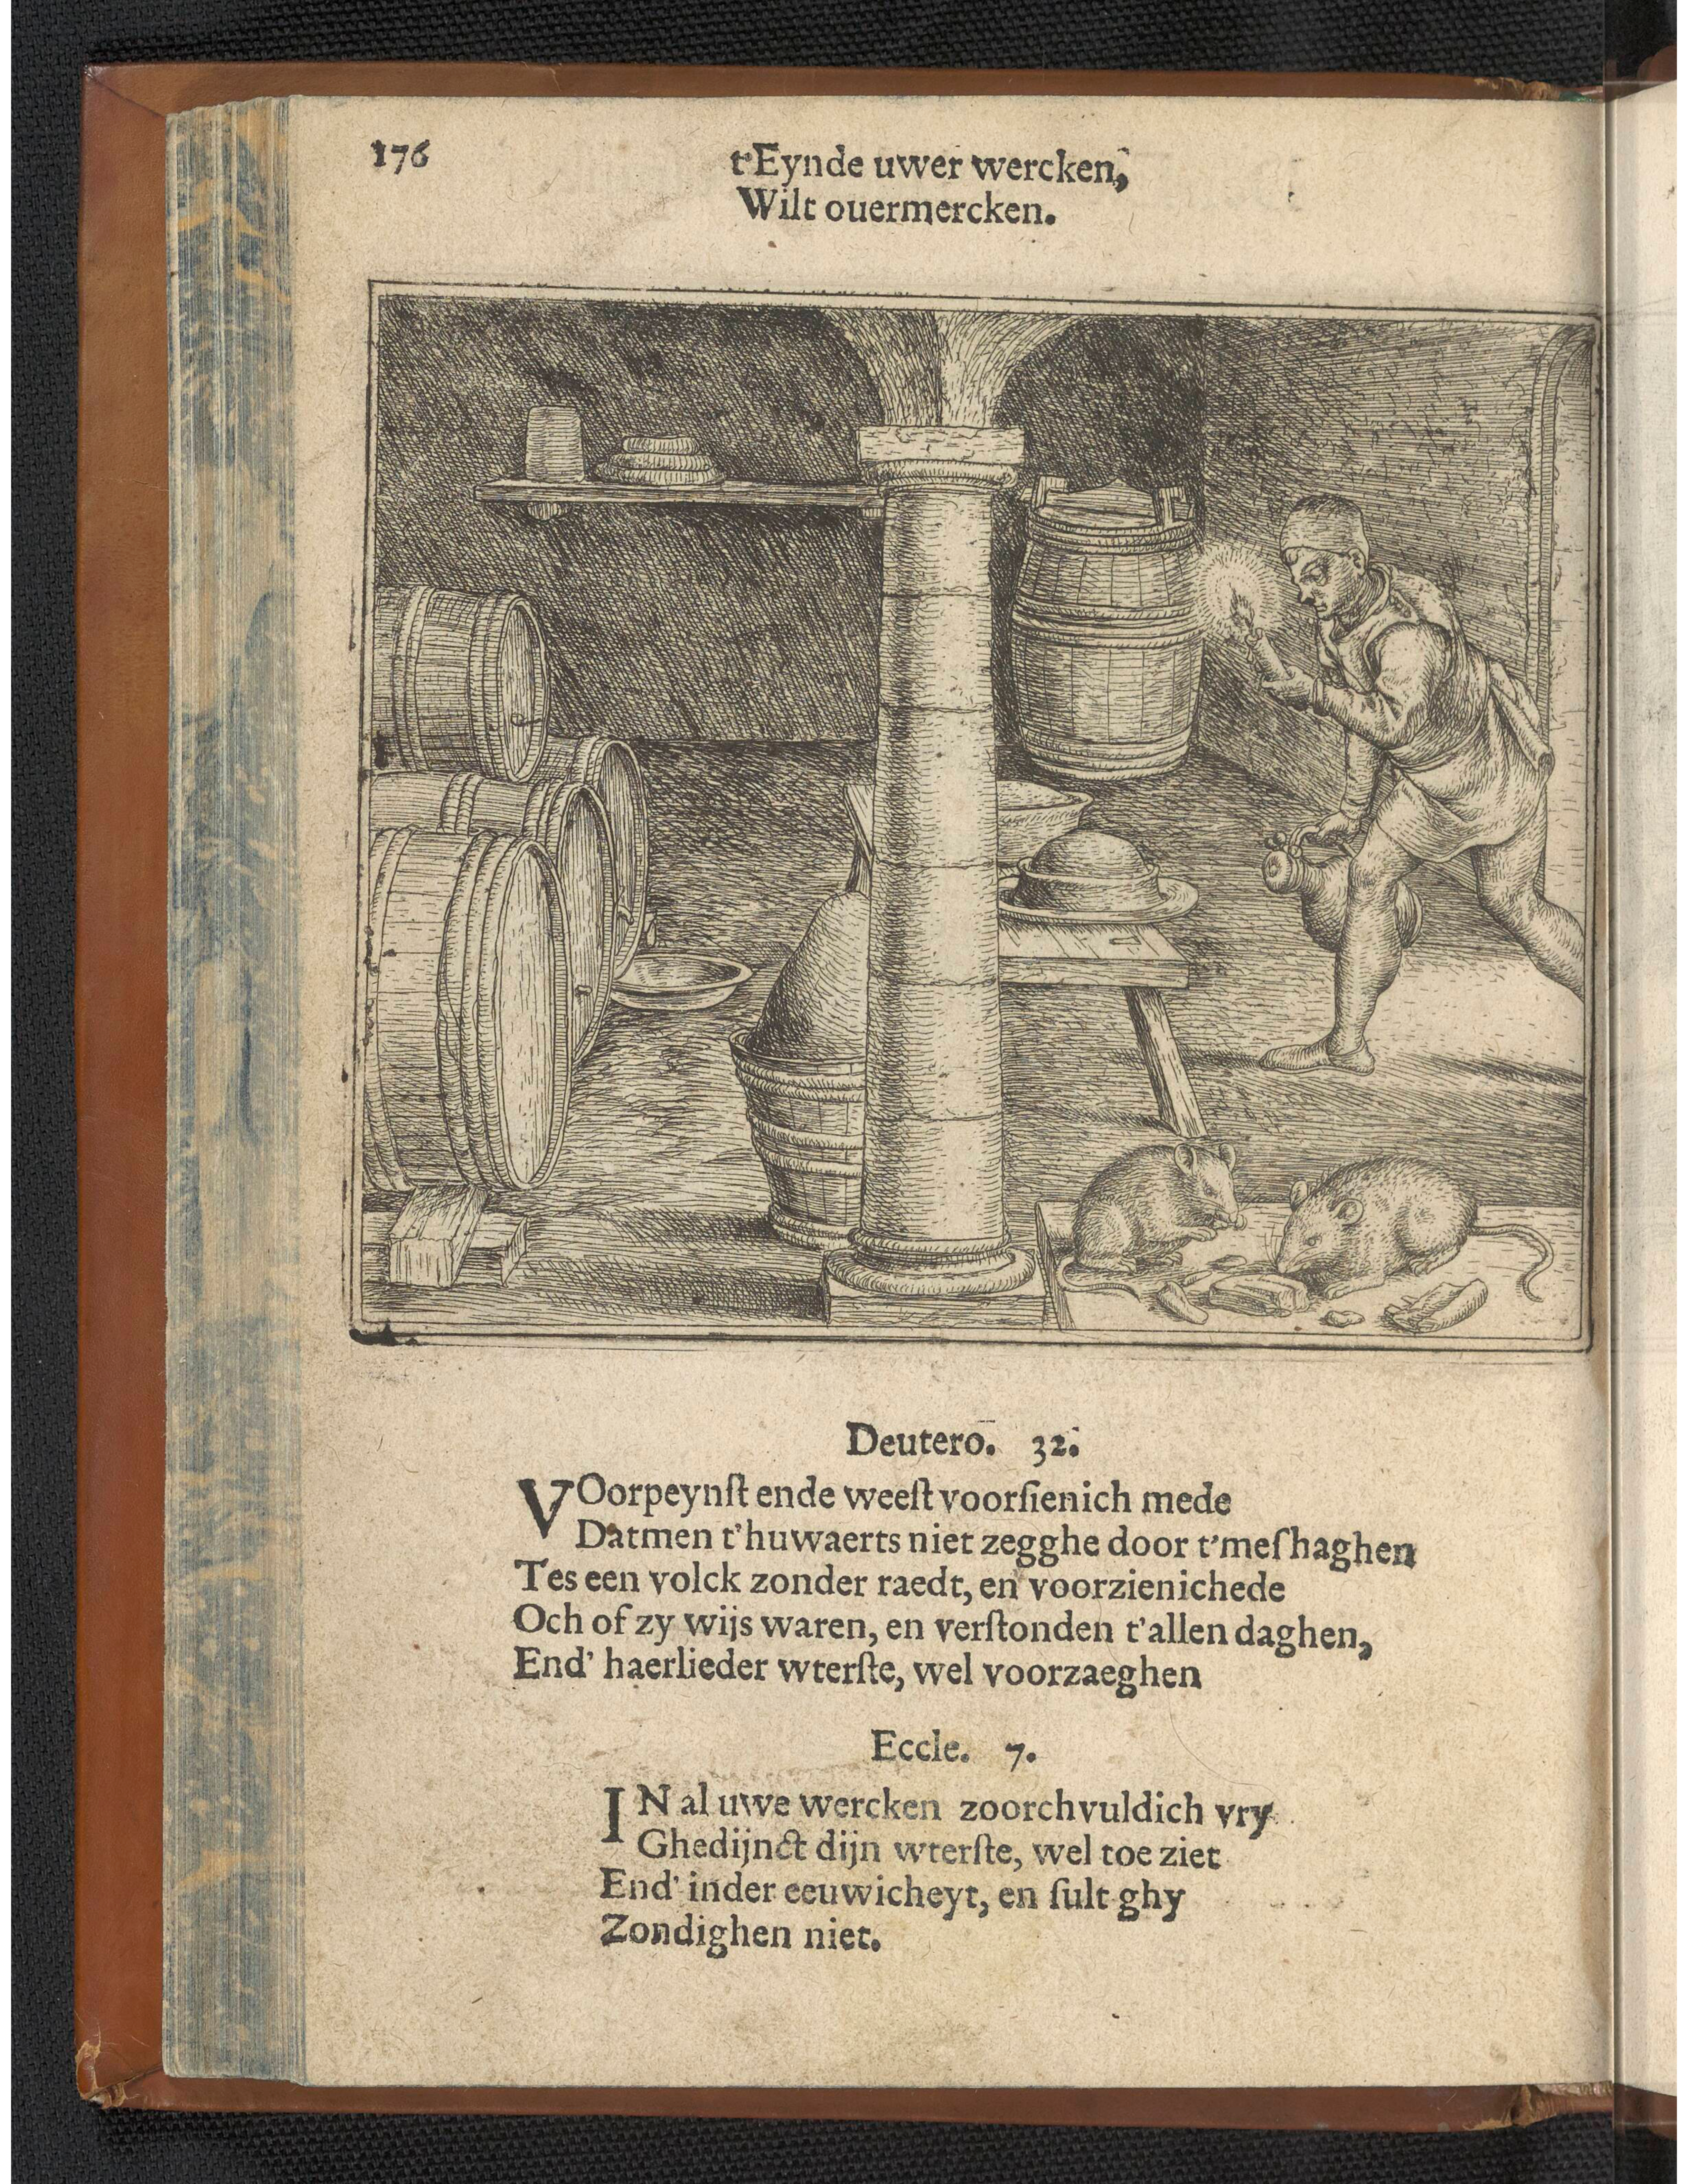 176
t'Eynde uwer wercken,
Wilt ouermercken.
Deutero. 32.
VOorpeynſt ende weeſt voorſienich mede
Datmen t'huwaerts niet zegghe door t'meſhaghen
Tes een volck zonder raedt, en voorzienichede
Och of zy wijs waren, en verſtonden t'allen daghen,
End' haerlieder wterſte, wel voorzaeghen
Eccle. 7.
IN al uwe wercken zoorchvuldich vry
Ghedijnct dijn wterſte, wel toe ziet
End' inder eeuwicheyt, en ſult ghy
Zondighen niet.